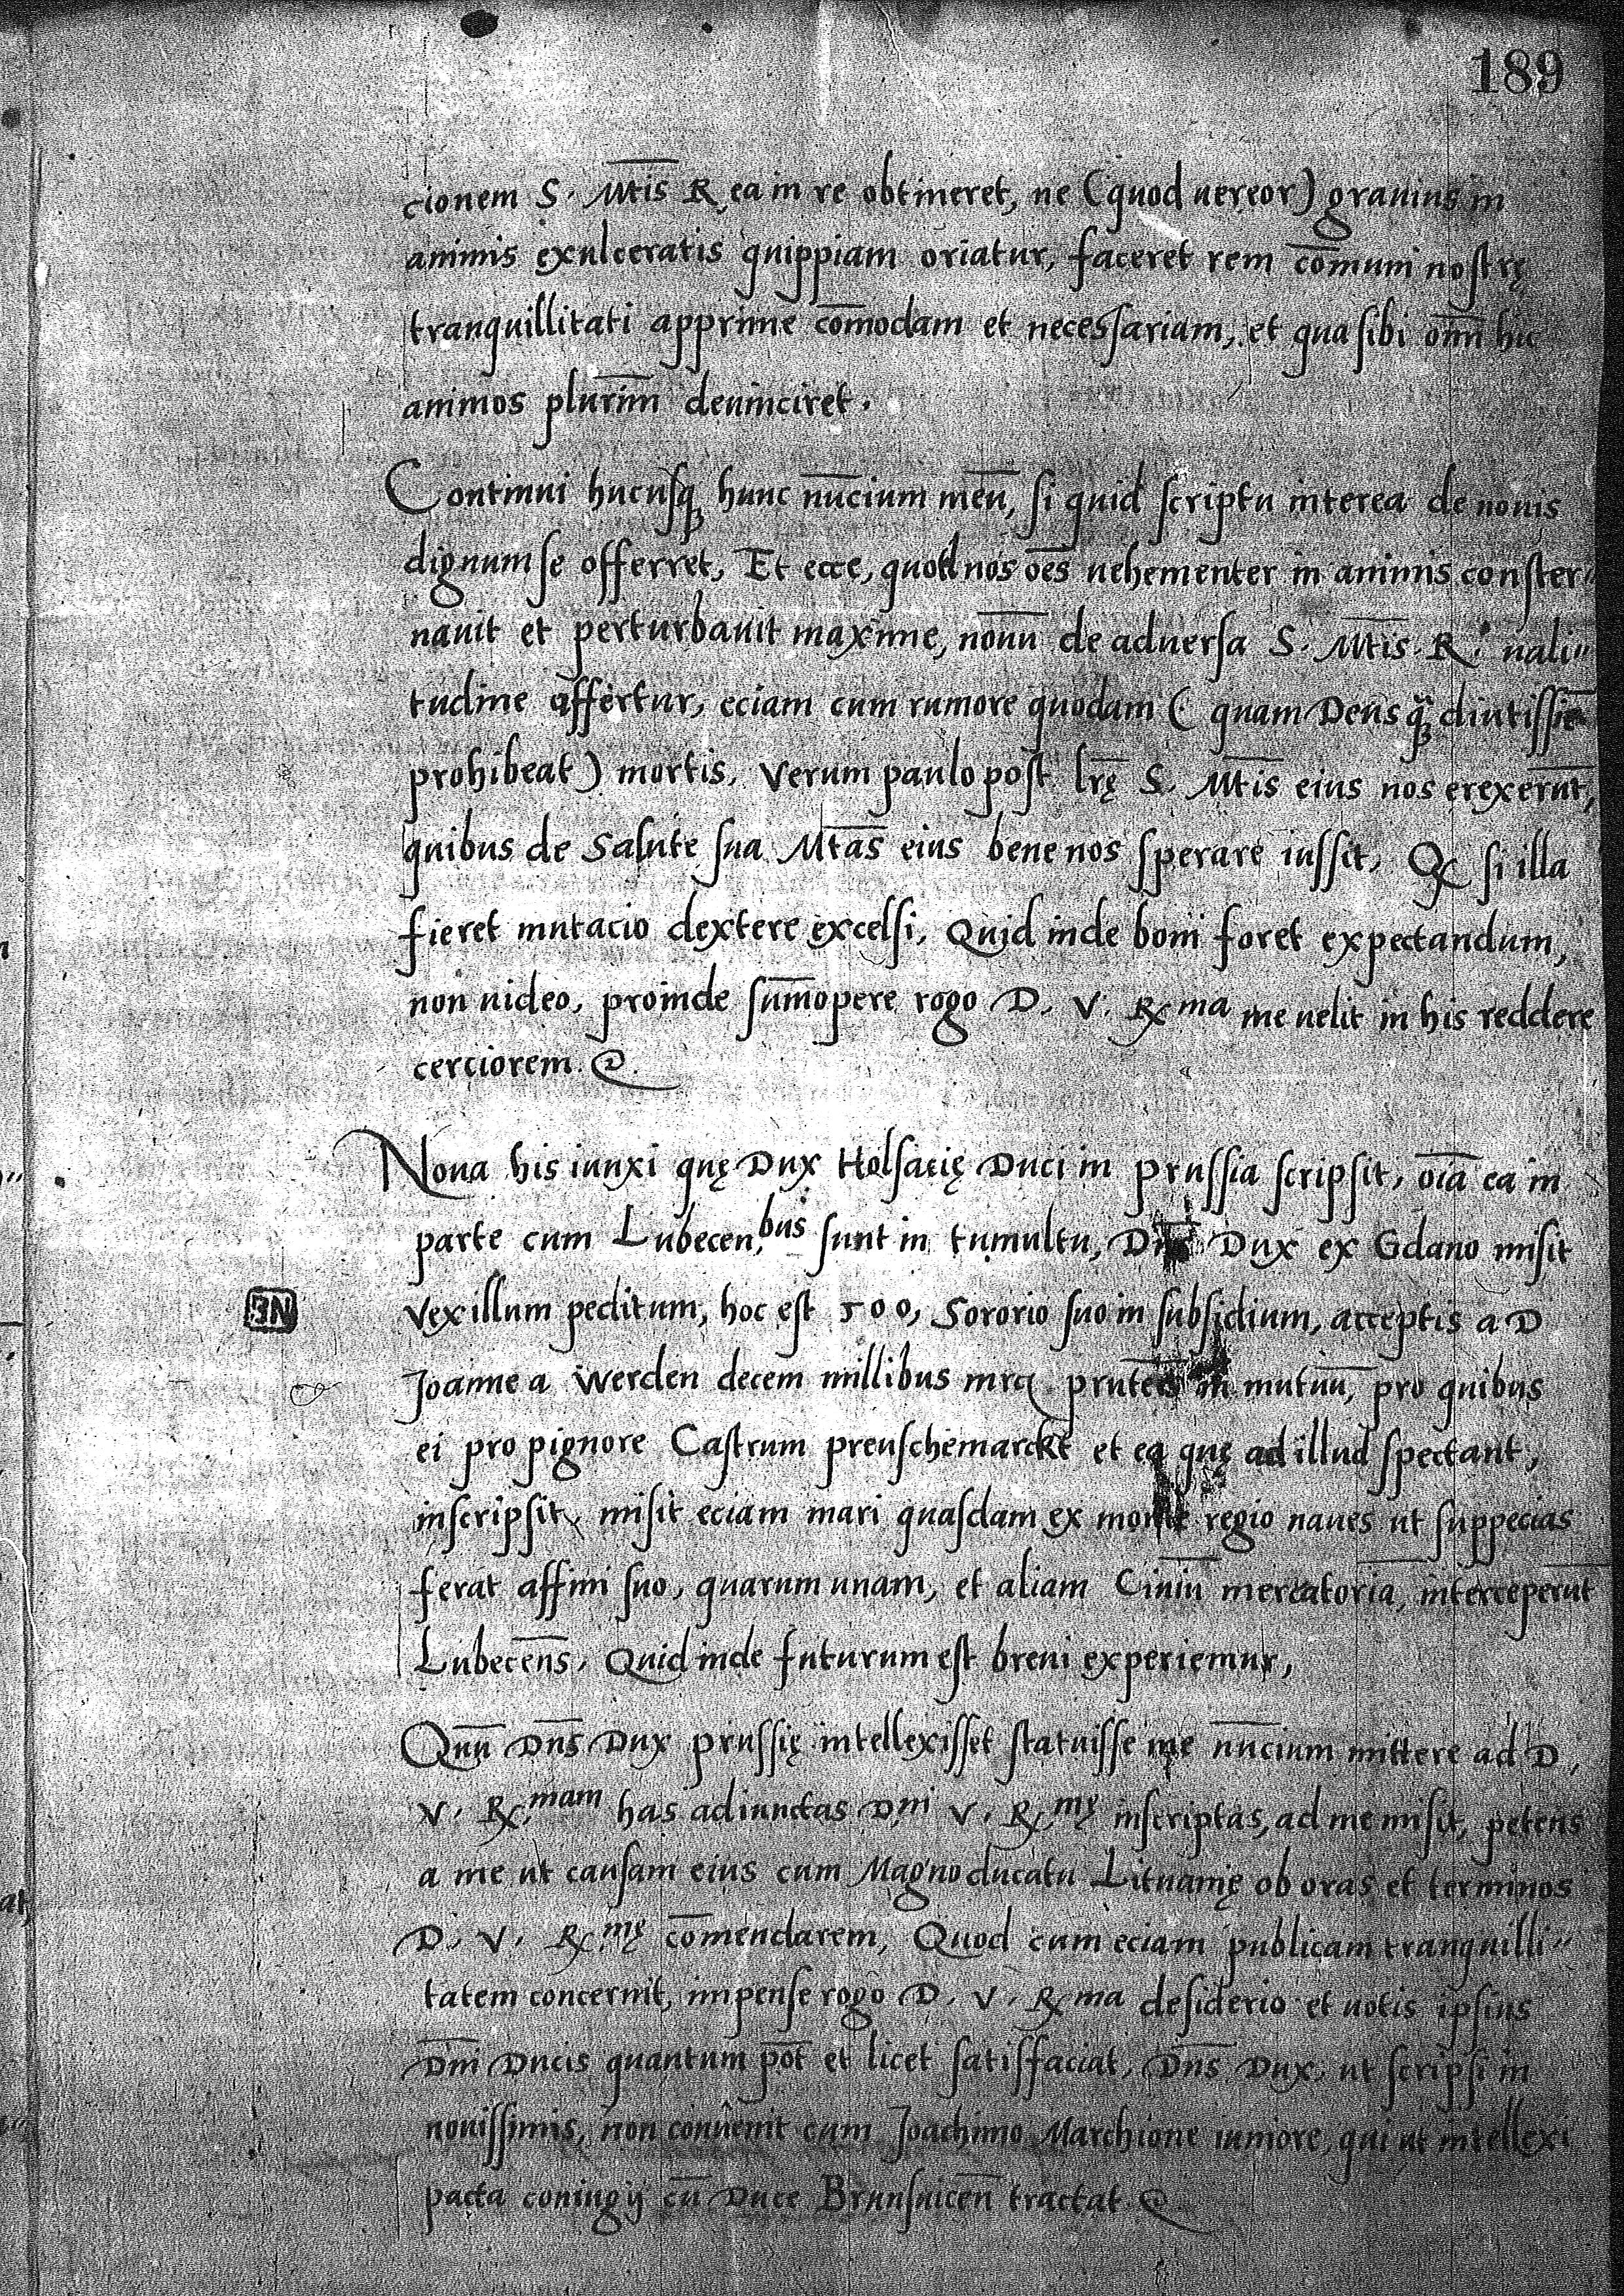 189
cionem S. Mtis R. ea in re obtineret, ne (quod uereor) grauius in
animis exulceratis quippiam oriatur, faceret rem com̄uni nostrę
tranquillitati apprime com̄odam et necessariam, et qua sibi om̄ hic
animos plurim̄ deuinciret.
Continui hucusq̨ hunc nūcium meū, si quid scriptu interea de nouis
dignum se offerret, Et ecce, quod nos oēs uehementer in animis conster"
nauit et perturbauit maxime, nouū de aduersa S. Mtis. R. uali"
tudine affertur, eciam cum rumore quodam (quam Deus q̨ diutissie
prohibeat) mortis, Verum paulo post lrę S. Mtis eius nos erexerūt,
quibus de Salute sua Mtas eius bene nos sperare iussit, Q si illa
fieret mutacio dextere excelsi, Quid inde boni foret expectandum,
non uideo, proinde sum̄opere rogo D. V. R ma me uelit in his reddere
cerciorem.
Noua his iunxi quę Dux Holsacię Duci in prussia scripsit, oīa ea in
parte cum Lubecen.bus sunt in tumultu, Dns Dux ex Gdano misit
NE
Vexillum peditum, hoc est 500, Sororio suo in subsidium, acceptis a D
Joanne a Werden decem millibus mrc prutēs in mutuū, pro quibus
ei pro pignore Castrum preuschemarckt et ea quę ad illud spectant,
inscripsit, misit eciam mari quasdam ex monte regio naues ut suppecias
ferat affini suo, quarum unam, et aliam Ciuiū mercatoria, interceperūt
Lubecens̄, Quid inde futurum est breui experiemur,
Quū Dns̄ Dux prussię intellexisset statuisse me nūcium mittere ad D.
V. R.mam has adiunctas D.ni V. R.mę inscriptas, ad me misit, petens
a me ut causam eius cum Magno ducatu Lituanię ob oras et terminos
D. V. R.mę com̄endarem, Quod cum eciam publicam tranquilli"
tatem concernit, impense rogo D. V. R ma desiderio et uotis ipsius
Dn̄i Ducis quantum pot̄ et licet satisfaciat, Dns̄ Dux, ut scripsi in
nouissimis, non conuenit cum Joachimo Marchione iuniore, qui ut intellexi
pacta coniugij cū Duce Brunsuicen̄ tractat.